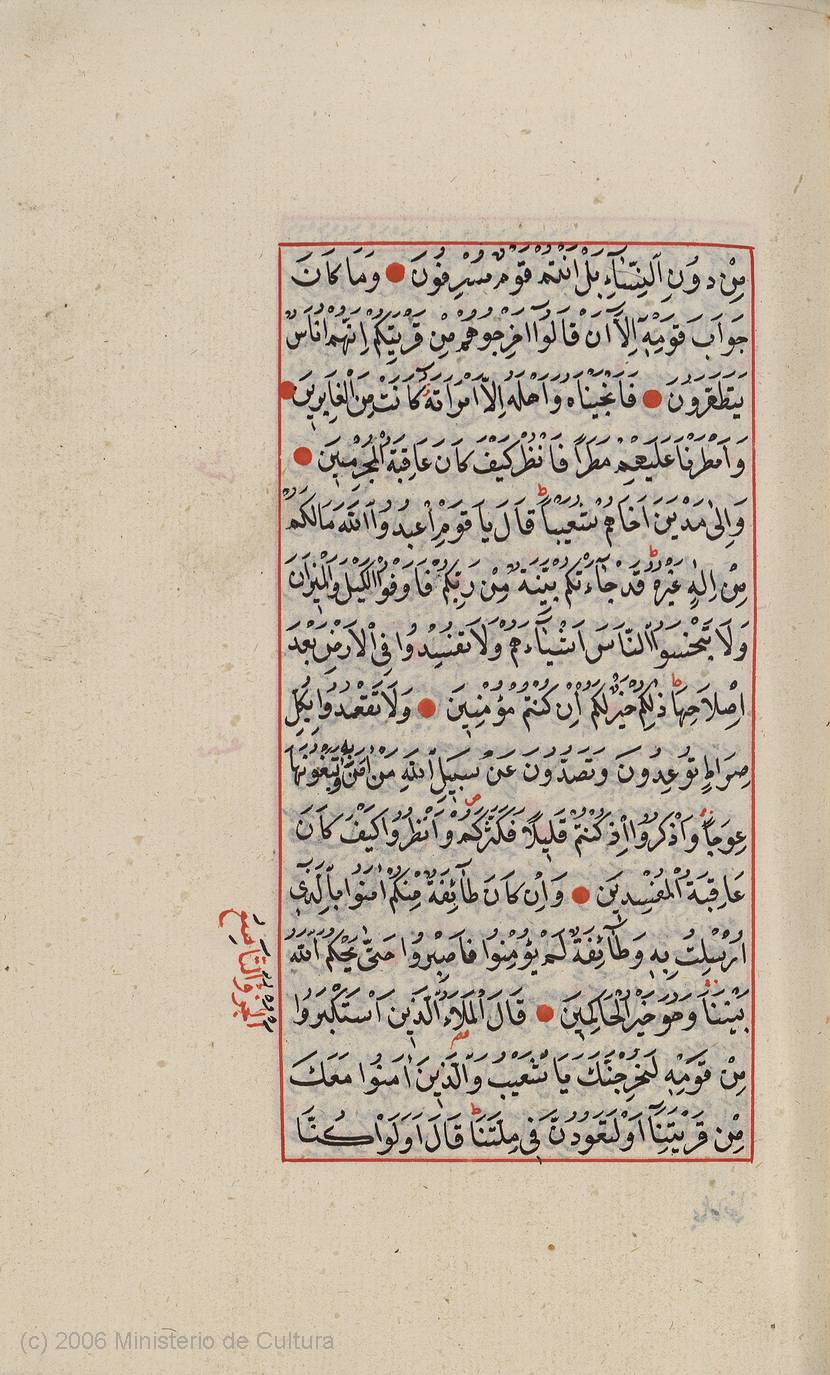 مِنْ دُونِ اَلنِّسَآءِ بَلْ اَنْتُمْ قَوْمٌ مُسْرِفُونَ وَمَا كَانَ
جَوَابَ قَوْمِهٖٓ اِلَّٓا اَنْ قَالُوٓا اَخْرِجُوهُمْ مِنْ قَرْيَتِكُمْ اِنَّهُمْ اُنَاسٌ
يَتَطَهَّرُونَ فَاَنْجَيْنَاهُ وَاَهْلَهُٓ اِلَّا امْرَاَتَهُ كَانَتْ مِنَ الْغَابِرِينَ
وَاَمْطَرْنَا عَلَيْهِمْ مَطَرًا فَانْظُرْ كَيْفَ كَانَ عَاقِبَةُ الْمُجْرِمِينَ
وَاِلٰى مَدْيَنَ اَخَاهُمْ شُعَيْبًا ط قَالَ يَا قَوْمِ اعْبُدُوا اللّٰهَ مَالَكُمْ
مِنْ اِلٰهٍ غَيْرُهُ ط قَدْ جَآءَتْكُمْ بَيِّنَةٌ مِنْ رَبِّكُمْ فَاَوْفُوا الْكَيْلَ وَالْمِيزَانَ
وَلَا تَبْخَسُوا النَّاسَ اَشْيَآءَهُمْ وَلَا تُفْسِدُوا فِى الْاَرْضِ بَعْدَ
اِصْلَاحِهَا ط ذٰلِكُمْ خَيْرٌ لَكُمْ اِنْ كُنْتُمْ مُؤْمِنِينَ وَلَا تَقْعُدُوا بِكُلِّ
صِرَاطٍ تُوعِدُونَ وَتَصُدُّونَ عَنْ سَبِيلِ اللّٰهِ مَنْ اٰمَنَ بِهٖ وَتَبْغُونَهَا
عِوَجًا وَاذْكُرُوٓا اِذْ كُنْتُمْ قَلِيلًا فَكَثَّرَكُمْ ص وَانْظُرُوا كَيْفَ كَانَ
عَاقِبَةُ الْمُفْسِدِينَ وَاِنْ كَانَ طَآئِفَةٌ مِنْكُمْ اٰمَنُوا بِالَّذِٓى
اُرْسِلْتُ بِهٖ وَطَآئِفَةٌ لَمْ يُؤْمِنُوا فَاصْبِرُوا حَتّٰى يَحْكُمَ اللّٰهُ
بَيْنَنَا وَهُوَ خَيْرُ الْحَاكِمِينَ قَالَ الْمَلَاُ الَّذِينَ اسْتَكْبَرُوا
مِنْ قَوْمِهٖ لَنُخْرِجَنَّكَ يَا شُعَيْبُ وَالَّذِينَ اٰمَنُوا مَعَكَ
مِنْ قَرْيَتِنَآ اَوْ لَتَعُودُنَّ فِى مِلَّتِنَا ط قَالَ اَوَلَوْ كُنَّا
الجزو التاسع
(c) 2006 Ministerio de Cultura